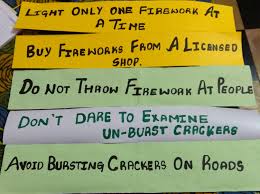 LIGHT ONLY ONE FIREWORK AT
A TIME
BUY FIREWORKS FROM A LICENSED
SHOP.
DO NOT THROW FIREWORK AT PEOPLE
DON'T DARE TO EXAMINE
UN-BURST CRACKERS
AVOID BURSTING CRACKERS ON ROADS